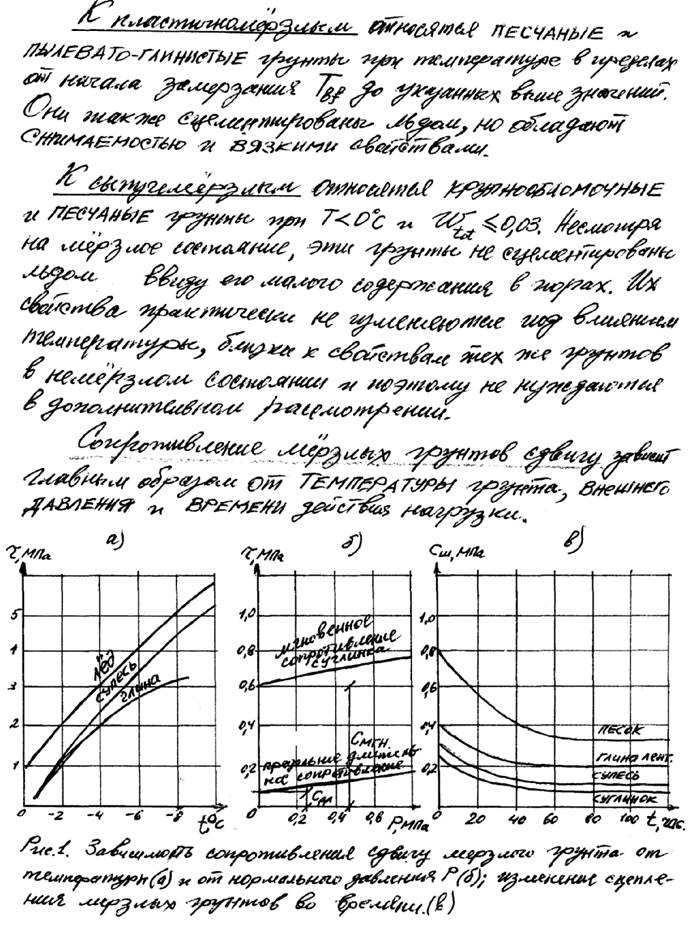 К пластичномёрзлым относятся ПЕСЧАНЫЕ и
ПЫЛЕВАТО-ГЛИНИСТЫЕ грунты при температуре в пределах
от начала замерзания Tbf до указанных выше значений.
Они также сцементированы льдом, но обладают
СЖИМАЕМОСТЬЮ и ВЯЗКИМИ свойствами.
К сыпучемёрзлым относятся КРУПНООБЛОМОЧНЫЕ
и ПЕСЧАНЫЕ грунты при T<0°C и Wtot ≤0,03. Несмотря
на мёрзлое состояние, эти грунты не сцементированы
льдом ввиду его малого содержания в порах. Их
свойства практически не изменяются под влиянием
температуры, близки к свойствам тех же грунтов
в немёрзлом состоянии и поэтому не нуждаются
в дополнительном рассмотрении.
Сопротивление мёрзлых грунтов сдвигу зависит
главным образом от ТЕМПЕРАТУРЫ грунта, ВНЕШНЕГО
ДАВЛЕНИЯ и ВРЕМЕНИ действия нагрузки.
а) б) в)
τ, МПа
5
1
3
2
1
лёд
супесь
глина
-2 -4 -6 -8
t,°C
τ, МПа
1,0
0,8
0,6
0,4
0,2
мгновенное
сопротивление
суглинка
Cмгн.
предельно длитель-
ное сопротивление
Cдл
0,2 0,4 0,6
P, МПа
Сш, МПа
1,0
0,8
0,6
0,4
0,2
ПЕСОК
ГЛИНА ЛЕНТ.
СУПЕСЬ
СУГЛИНОК
0 20 40 60 80 100 t, час.
Рис.1. Зависимость сопротивления сдвигу мерзлого грунта от
температуры (а) и от нормального давления P (б); изменение сцепле-
ния мерзлых грунтов во времени. (в)